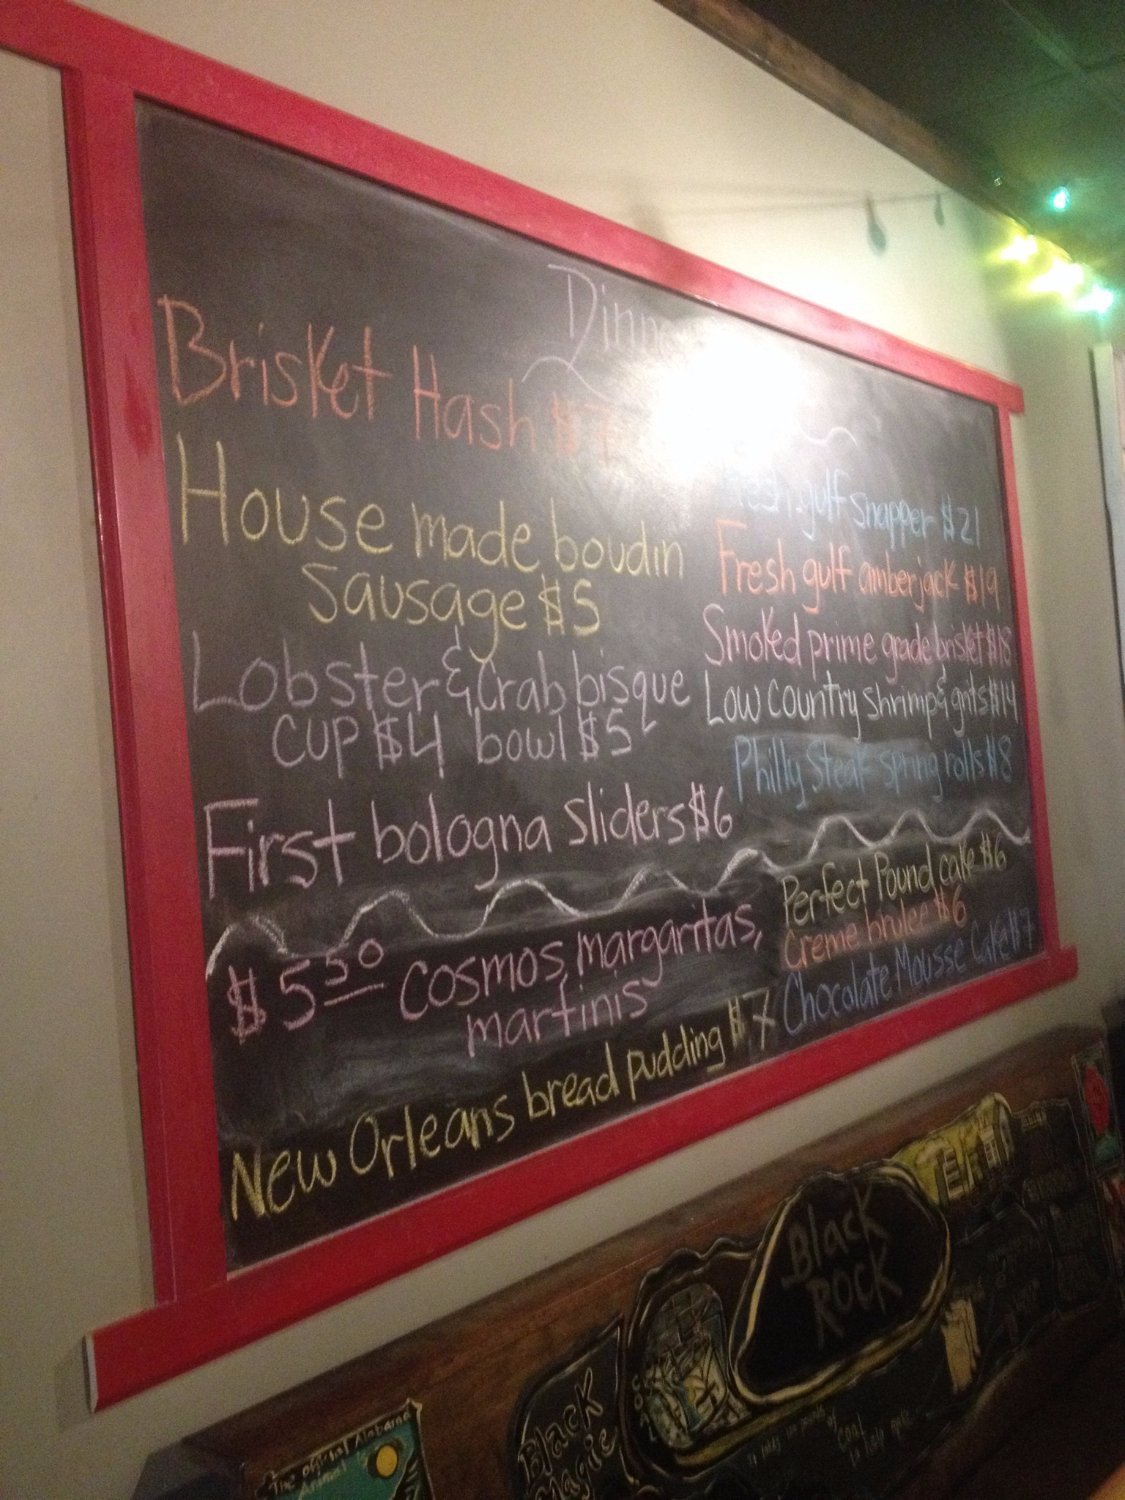 Brisket Hash $7
House made boudin
sausage $5
Lobster & crab bisque
cup $4 bowl $5
First bologna sliders $6
gulf snapper $21
Fresh gulf amberjack $19
Smoked prime grade brisket $18
Low country shrimp & grits $14
Philly steak spring rolls $8
$5 50 cosmos, margaritas,
martinis
New Orleans bread pudding $7
Perfect Pound cake $6
creme brulee $6
Chocolate Mousse Cake $7
Black
Rock
Black
Magic
The original Alabama
Animal
coal